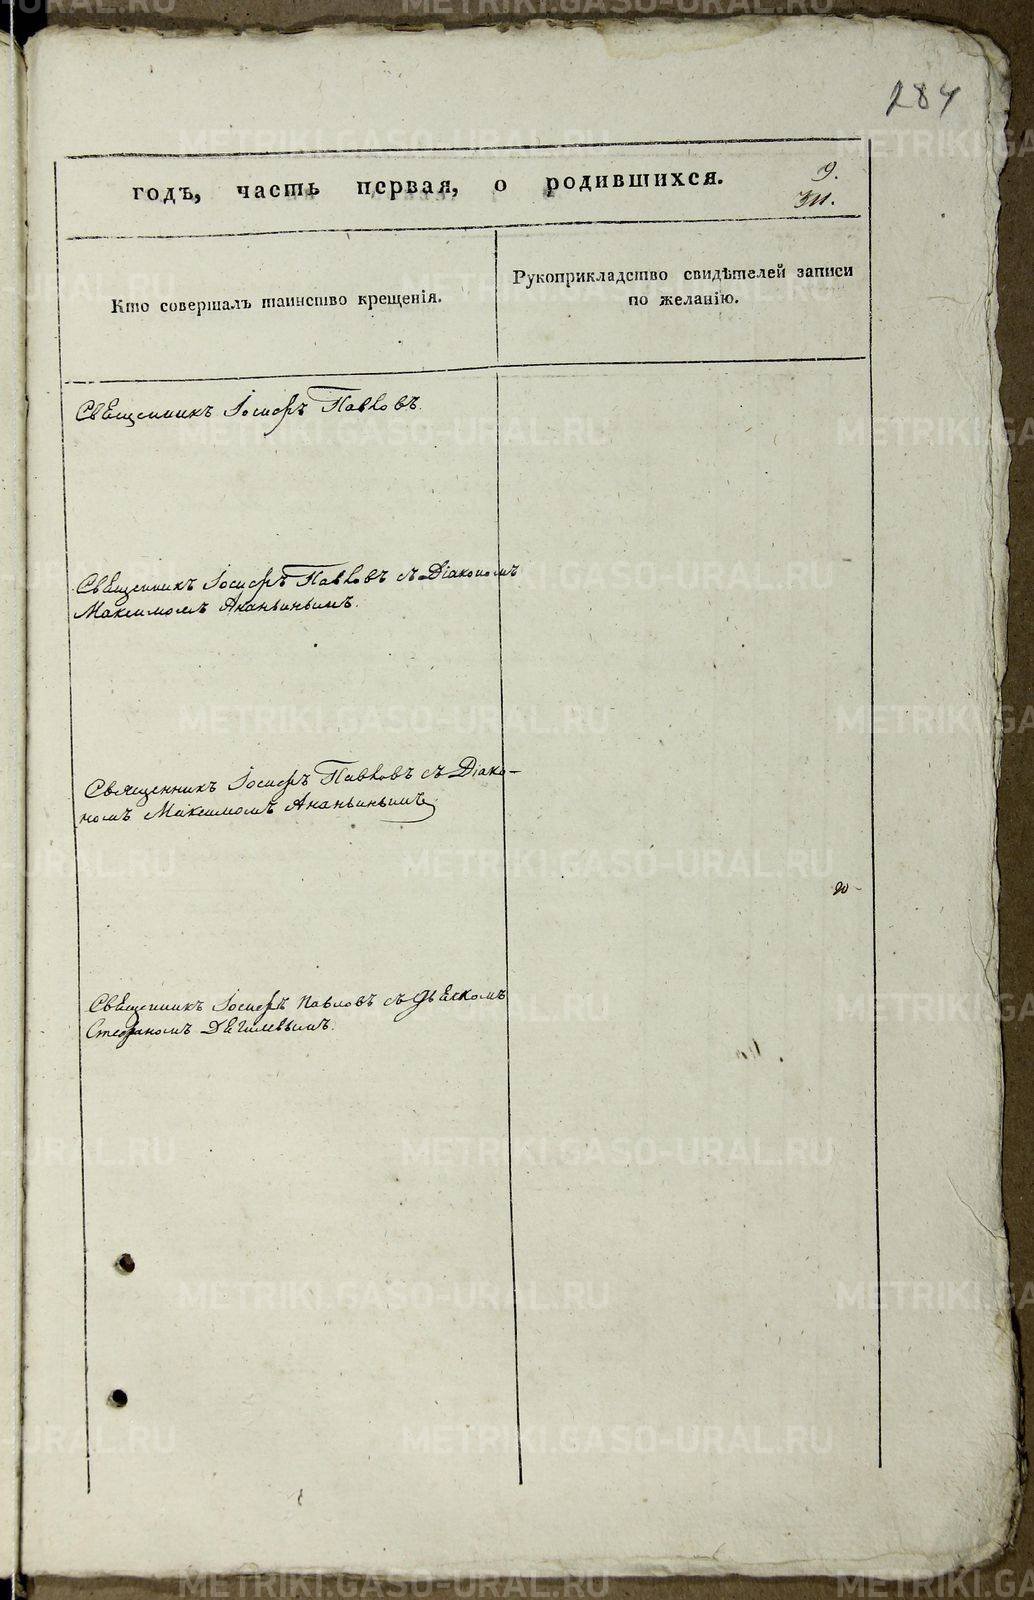 284
годъ, часть первая, о родившихся.
9.
311.
Кто совершалъ таинство крещенія.
Рукоприкладство свидѣтелей записи
по желанію.
Священникъ Іосифъ Павловъ.
Священникъ Іосифъ Павловъ съ Діакономъ
Максимомъ Ананьинымъ.
Священникъ Іосифъ Павловъ съ Діако-
номъ Максимомъ Ананьинымъ.
Священникъ Іосифъ Павловъ съ дьячкомъ
Стефаномъ Дягилевымъ.
METRIKI.GASO-URAL.RU